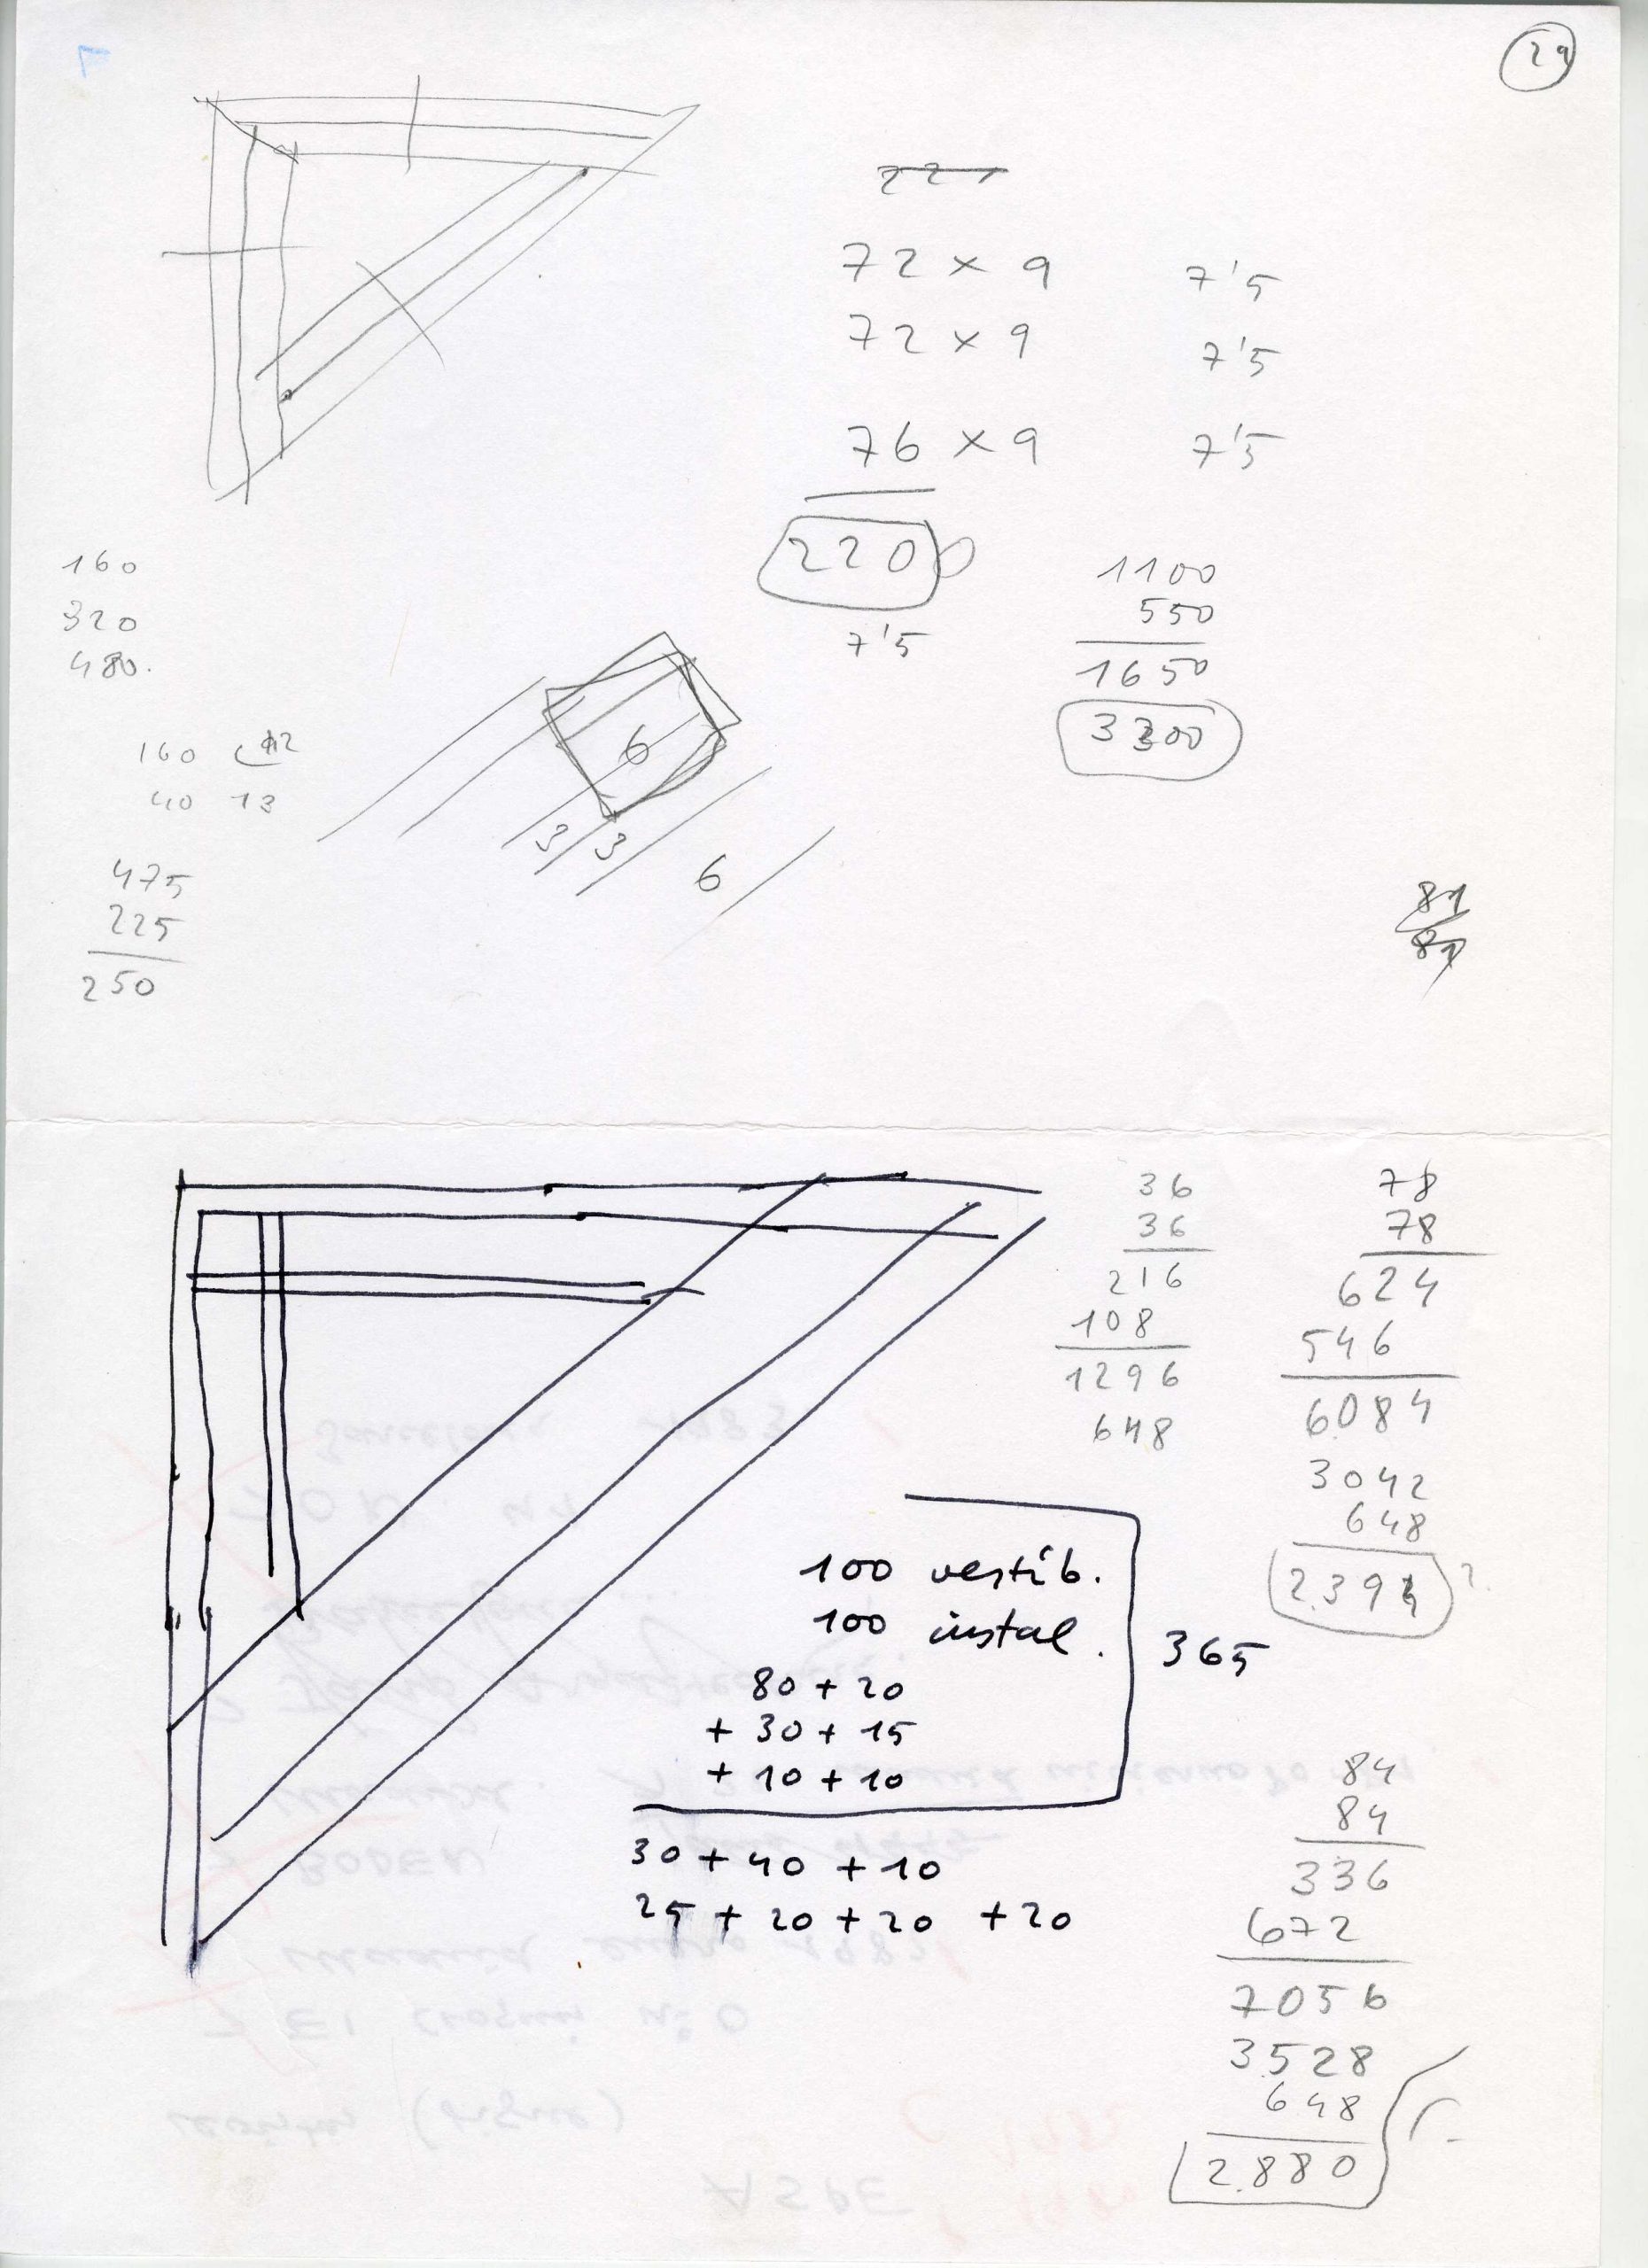 29
221
72 × 9 7'5
72 × 9 7'5
76 × 9 7'5
2200
7'5
1100
550
1650
3300
160
320
480.
160 12
40 13
475
225
250
6
3 3 6
81
81
36
36
216
108
1296
648
78
78
624
546
6084
3042
648
2.394 ?
100 vestib.
100 instal.
80 + 20
+ 30 + 15
+ 10 + 10
365
30 + 40 + 10
25 + 20 + 20 + 20
84
84
336
672
7056
3.528
648
2.880